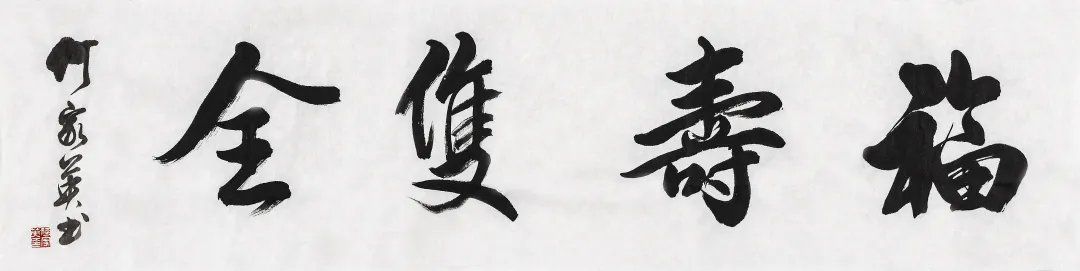 福壽雙全
何家英书